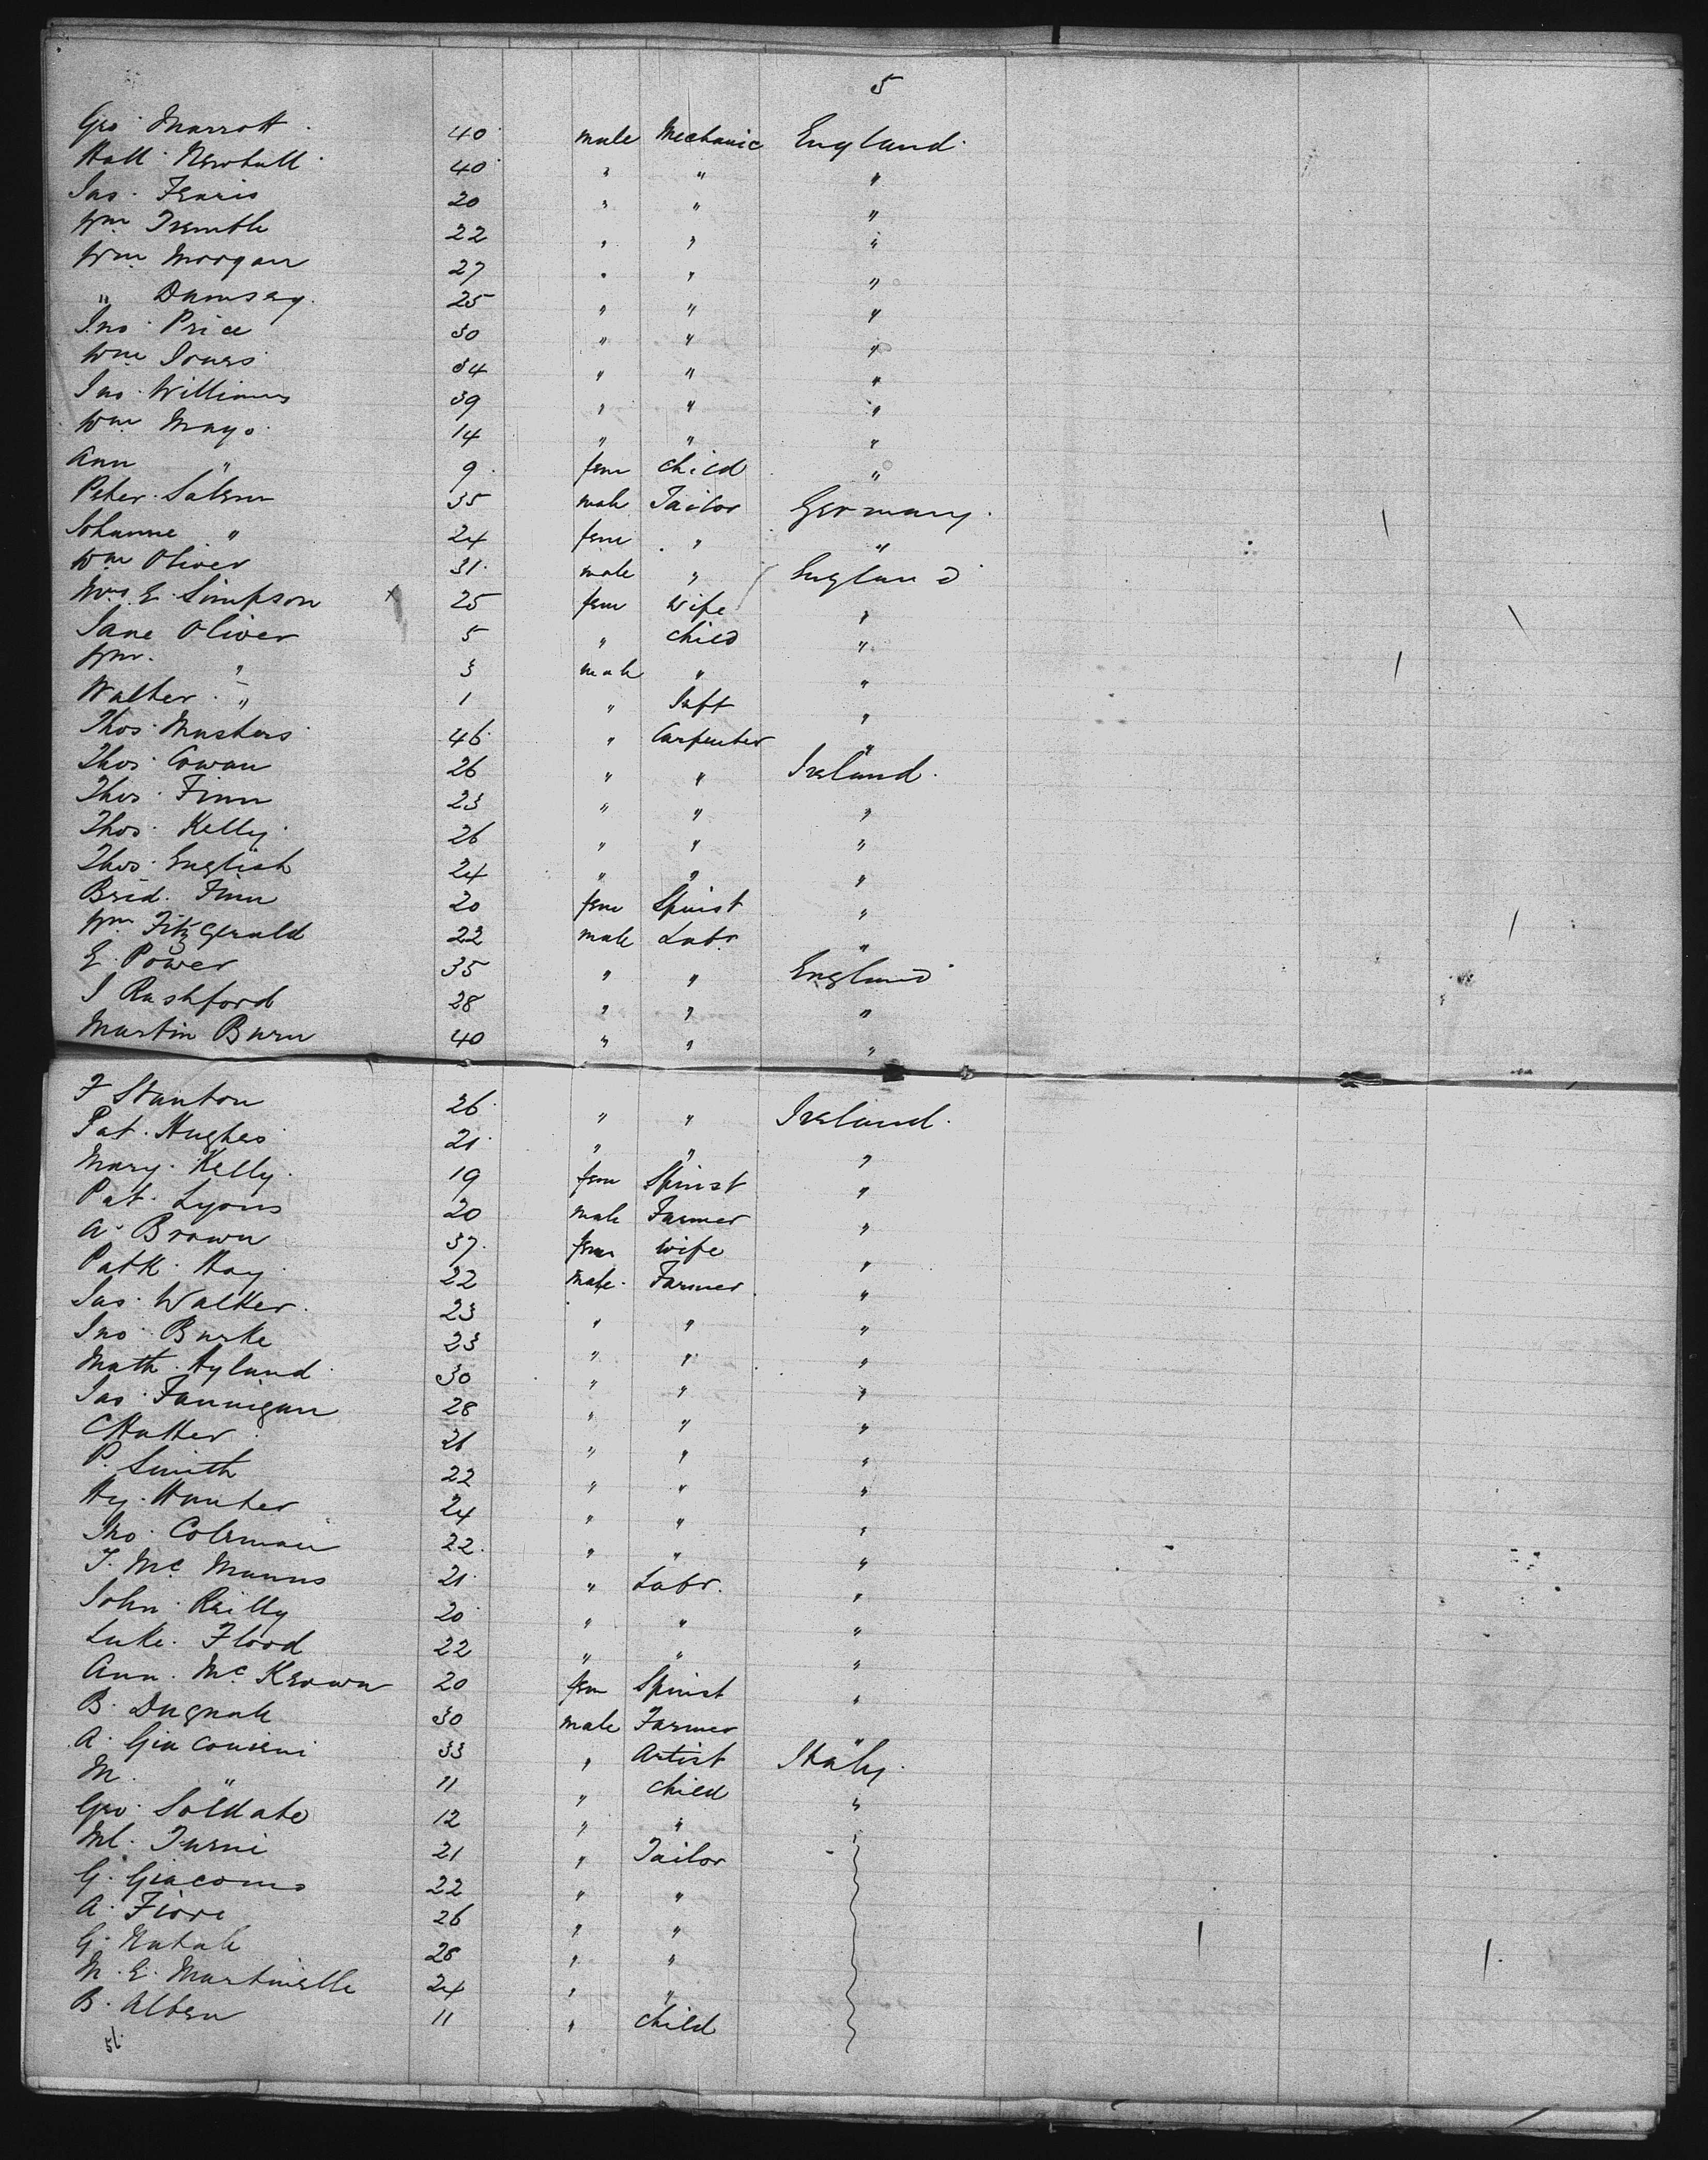 5
Geo Marrott 40 male Mechanic England
Hall Newhall 40 " " "
Jas. Ferris 20 " " "
Wm Tremble 22 " " "
Wm Morgan 27 " " "
" Damsey 25 " " "
Jno. Price 30 " " "
Wm Jones 34 " " "
Jno. Williams 39 " " "
Wm Mayo 14 " " "
Ann " 9 fem child "
Peter Salem 35 male Tailor Germany
Johanne " 24 fem " "
Wm Oliver 31 male " England
Mrs E. Simpson x 25 fem wife "
Jane Oliver 5 " child "
Wm. " 3 male " "
Walter " 1 " Inft "
Thos. Masters 46 " Carpenter "
Thos. Cowan 26 " " Ireland
Thos. Finn 23 " " "
Thos. Kelly 26 " " "
Thos. English 24 " " "
Brid. Finn 20 fem Spinst "
Wm FitzGerald 22 male Labr "
E. Power 35 " " England
J Rashford 28 " " "
Martin Burn 40 " " "
F Stanton 26 " " Ireland
Pat. Hughes 21 " " "
Mary. Kelly 19 fem Spinst "
Pat. Lyons 20 male Farmer "
A. Brown 37 fem wife "
Patk. Hay 22 male Farmer "
Jas. Walker 23 " " "
Jno. Burke 23 " " "
Math. Hyland 30 " " "
Jas. Fannigan 28 " " "
C Hatter 26 " " "
P. Smith 22 " " "
Hy. Hunter 24 " " "
Jno. Coleman 22 " " "
T. Mc Manus 21 " Labr. "
John Reilly 20 " " "
Luke. Flood 22 " " "
Ann. Mc Keown 20 fem Spinst "
B. Dugnale 30 male Farmer "
A. Giaconieni 33 " Artist Italy
M. " 11 " child "
Geo. Soldato 12 " "
Ml. Turni 21 " Tailor
G. Giacomo 22 " "
A. Fiore 26 " "
G. Natale 28 " "
M. E. Martinelle 24 " "
B. Alben 11 " child
56